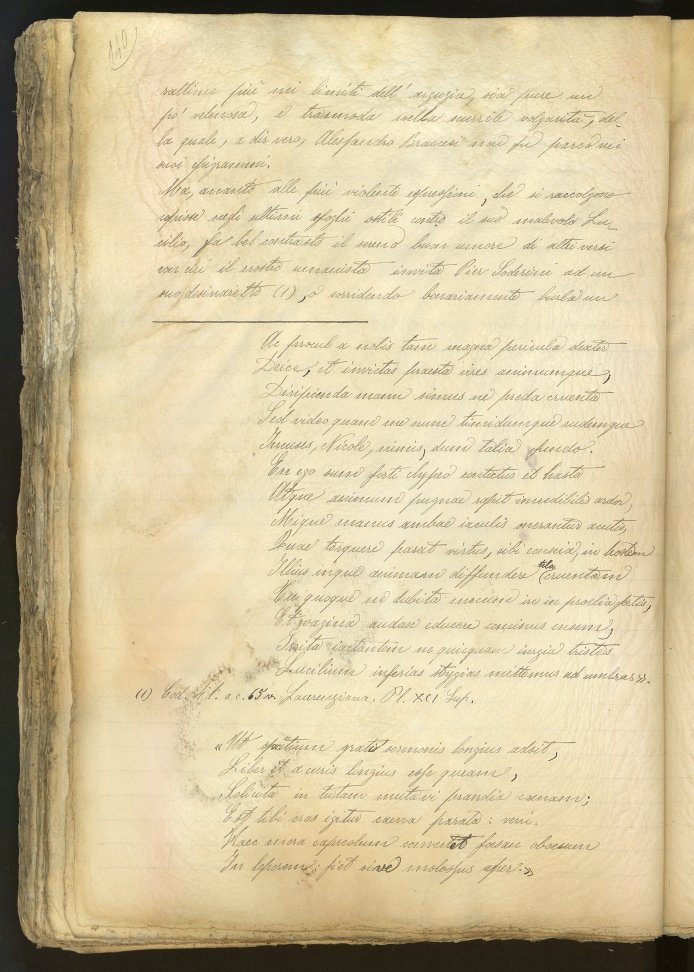 140
rattiene più nei limiti dell' arguzia, sia pure un
po' velenosa, e trasmoda nella scurrile volgarità, del-
la quale, a dir vero, Alessandro Braccesi non fu parco nei
suoi epigrammi.
Ma, accanto alle più violente espressioni, che si raccolgono
copiose negli ultimi sfoghi ostili contro il suo malevolo Lu-
cilio, fa bel contrasto il sereno buon umore di altri versi
con cui il nostro umanista invita Pier Soderini ad un
suo desinaretto (1), o sorridendo bonariamente burla un
Ac procul a nobis tam magna pericula dexter
Deice, et invictas praesta vires animumque,
Diripienda manu simus ne preda cruenta
Sed video quam me nunc timidumque rudemque
Incuses, Nicole, nimis, dum talia fundo.
En ego sum forti clypeo contectus et hasta
Atque animum pugnae rapit incredibilis ardor,
Mique manus ambae iaculis onerantur acutis,
Quae torquere parat virtus, sibi conscia, in hostem
Illius inque animam diffundere tela cruentam
Tu quoque ne dubita mecum ire in proelia fortis,
Et vagina audax educere cominus ensem,
iactantem ne quisquam iurgia tristes
Lucilium inferias stygias mittemus ad umbras ».
(1) Cod. cit. a c. 65 v. Laurenziana. Pl. XCI Sup.
« Ut spatium grati sermonis longius adsit,
Liber et a curis longius esse queam,
Solicita in tutam mutavi prandia caenam;
Est tibi cras igitur caena parata: veni.
Haec mora capreolum convertet forsan obaesum
In leporem: fiet sive molossus aper. »